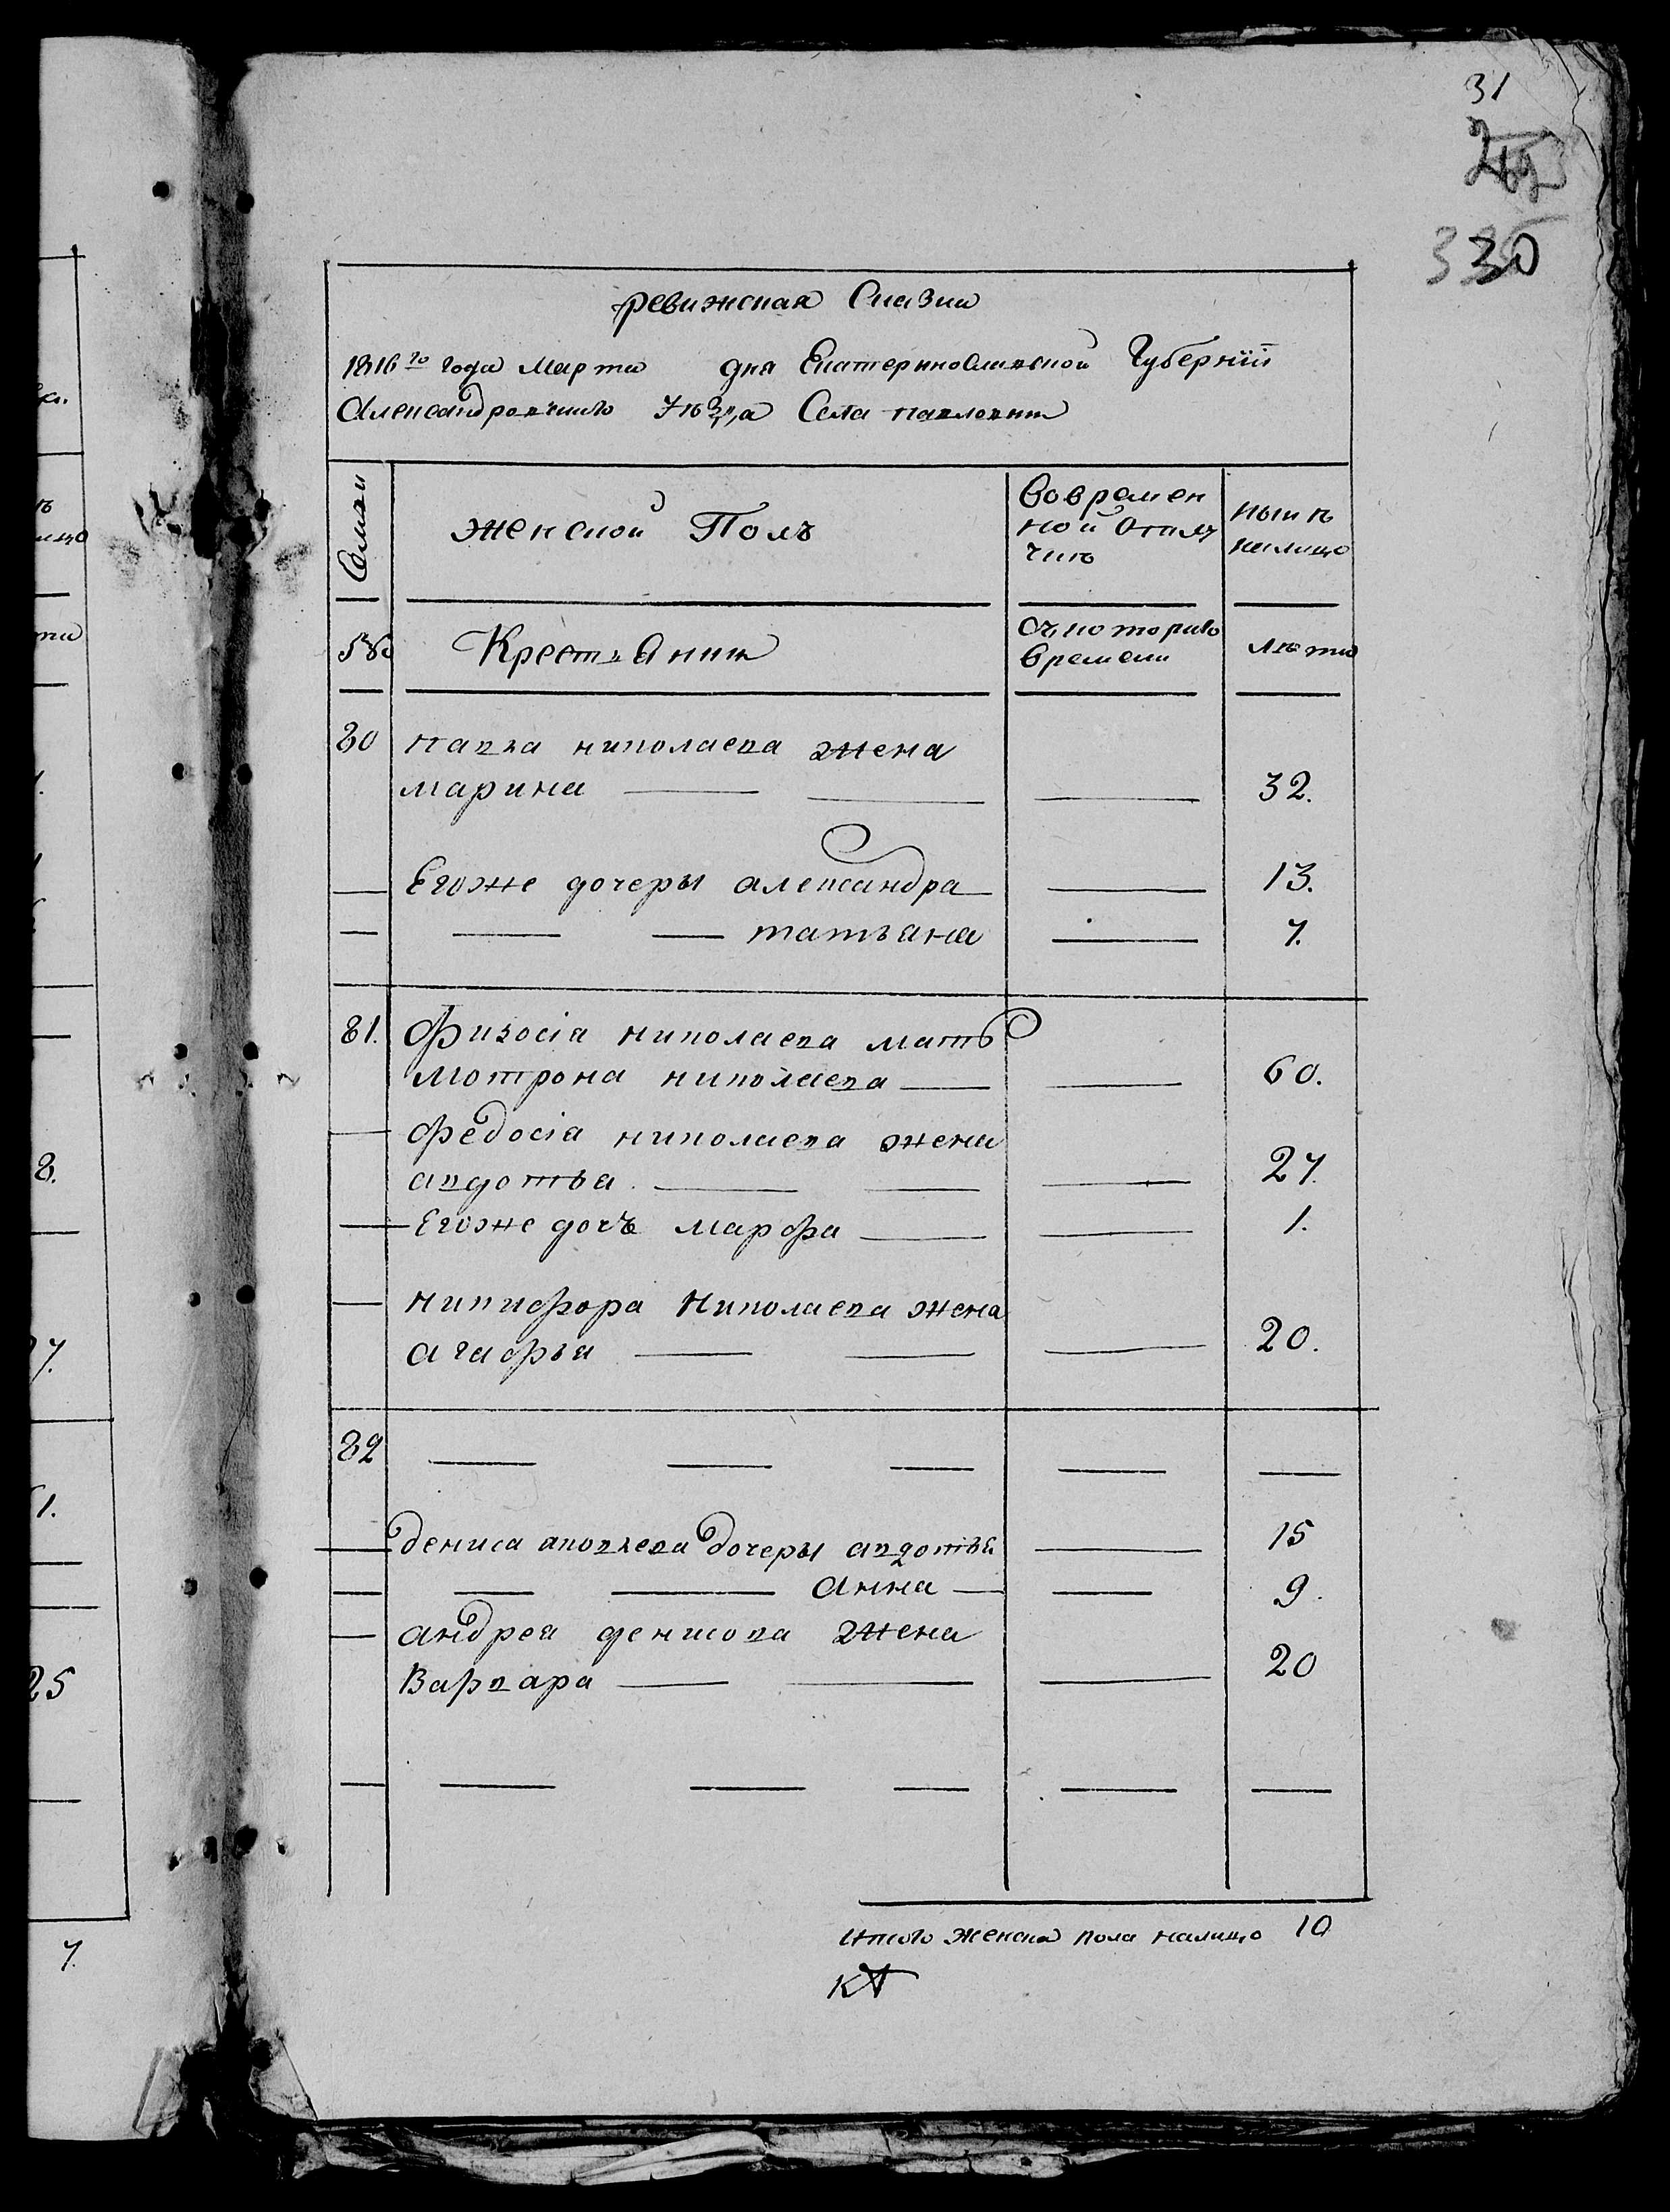 31
330
ревижская Сказка
1816го года Марта дня Екатеринославской Губернїи
Александровскаго уѣзда Села павловки
Семьи
женской Полъ
Вовремен
ной отлу
чкѣ
нынѣ
налицо
Крестьянки
Съкотораго
времени
лѣта
80 павла николаева жена
марина 32.
Егоже дочеры александра 13.
татьяна 7.
81. Физосiя николаева мать
мотрона николаева 60.
федосiя николаева жена
авдотья 27.
Егоже дочь марфа 1.
никифора николаева жена
агафья 20.
82
дениса яковлева дочеры авдотья 15
Анна 9.
андрея денисова жена
Варвара 20
Итого женска пола налицо 10
8.
7.
1.
25
7.